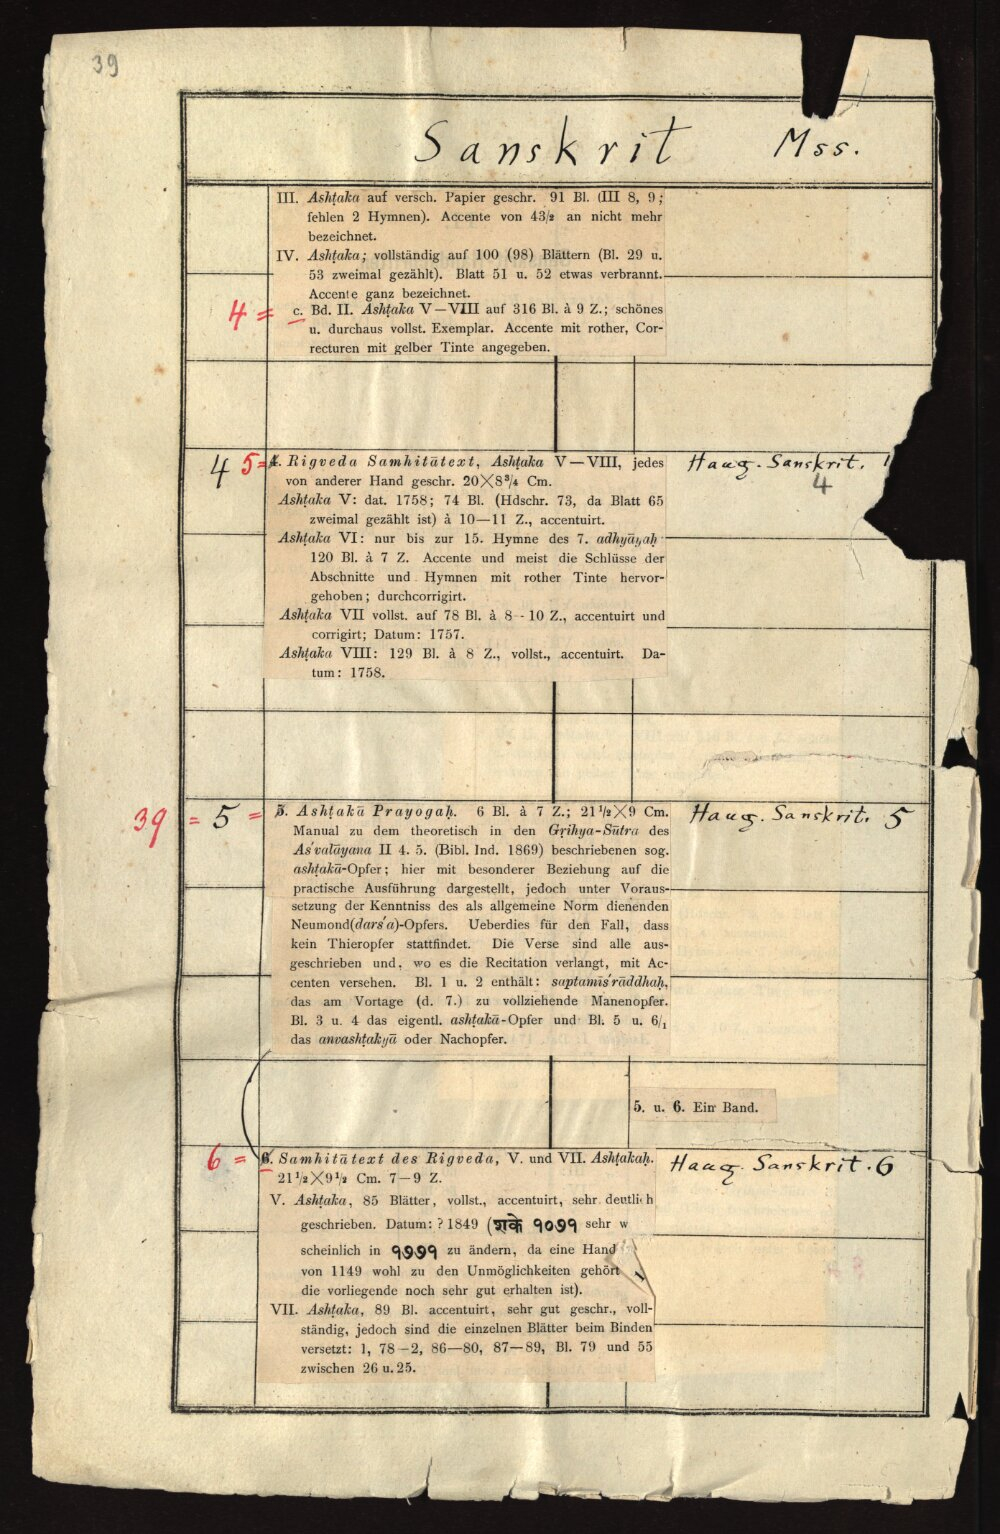 39
Sanskrit Mss.
III. Ashṭaka auf versch. Papier geschr. 91 Bl. (III 8, 9;
fehlen 2 Hymnen). Accente von 43/2 an nicht mehr
bezeichnet.
IV. Ashṭaka; vollständig auf 100 (98) Blättern (Bl. 29 u.
53 zweimal gezählt). Blatt 51 u. 52 etwas verbrannt.
Accente ganz bezeichnet.
4 = c. Bd. II. Ashṭaka V—VIII auf 316 Bl. à 9 Z.; schönes
u. durchaus vollst. Exemplar. Accente mit rother, Cor-
recturen mit gelber Tinte angegeben.
4 5 = 4. Rigveda Samhitātext, Ashṭaka V—VIII, jedes
von anderer Hand geschr. 20×8³/₄ Cm.
Ashṭaka V: dat. 1758; 74 Bl. (Hdschr. 73, da Blatt 65
zweimal gezählt ist) à 10—11 Z., accentuirt.
Ashṭaka VI: nur bis zur 15. Hymne des 7. adhyāyaḥ
120 Bl. à 7 Z. Accente und meist die Schlüsse der
Abschnitte und Hymnen mit rother Tinte hervor-
gehoben; durchcorrigirt.
Ashṭaka VII vollst. auf 78 Bl. à 8--10 Z., accentuirt und
corrigirt; Datum: 1757.
Ashṭaka VIII: 129 Bl. à 8 Z., vollst., accentuirt. Da-
tum: 1758.
Haug. Sanskrit.
4
39 = 5 = 5. Ashṭakā Prayogaḥ. 6 Bl. à 7 Z.; 21¹/₂×9 Cm.
Manual zu dem theoretisch in den Gṛihya-Sūtra des
As'valāyana II 4. 5. (Bibl. Ind. 1869) beschriebenen sog.
ashṭakā-Opfer; hier mit besonderer Beziehung auf die
practische Ausführung dargestellt, jedoch unter Voraus-
setzung der Kenntniss des als allgemeine Norm dienenden
Neumond(dars'a)-Opfers. Ueberdies für den Fall, dass
kein Thieropfer stattfindet. Die Verse sind alle aus-
geschrieben und, wo es die Recitation verlangt, mit Ac-
centen versehen. Bl. 1 u. 2 enthält: saptamīs'rāddhaḥ,
das am Vortage (d. 7.) zu vollziehende Manenopfer.
Bl. 3 u. 4 das eigentl. ashṭakā-Opfer und Bl. 5 u. 6/₁
das anvashṭakyā oder Nachopfer.
Haug. Sanskrit. 5
5. u. 6. Ein Band.
6 = 6. Samhitātext des Rigveda, V. und VII. Ashṭakaḥ.
21¹/₂×9¹/₂ Cm. 7—9 Z.
V. Ashṭaka, 85 Blätter, vollst., accentuirt, sehr deutlich
geschrieben. Datum: ? 1849 (शके १०७१ sehr w
scheinlich in १७७१ zu ändern, da eine Hand
von 1149 wohl zu den Unmöglichkeiten gehört
die vorliegende noch sehr gut erhalten ist).
VII. Ashṭaka, 89 Bl. accentuirt, sehr gut geschr., voll-
ständig, jedoch sind die einzelnen Blätter beim Binden
versetzt: 1, 78—2, 86—80, 87—89, Bl. 79 und 55
zwischen 26 u. 25.
Haug. Sanskrit. 6